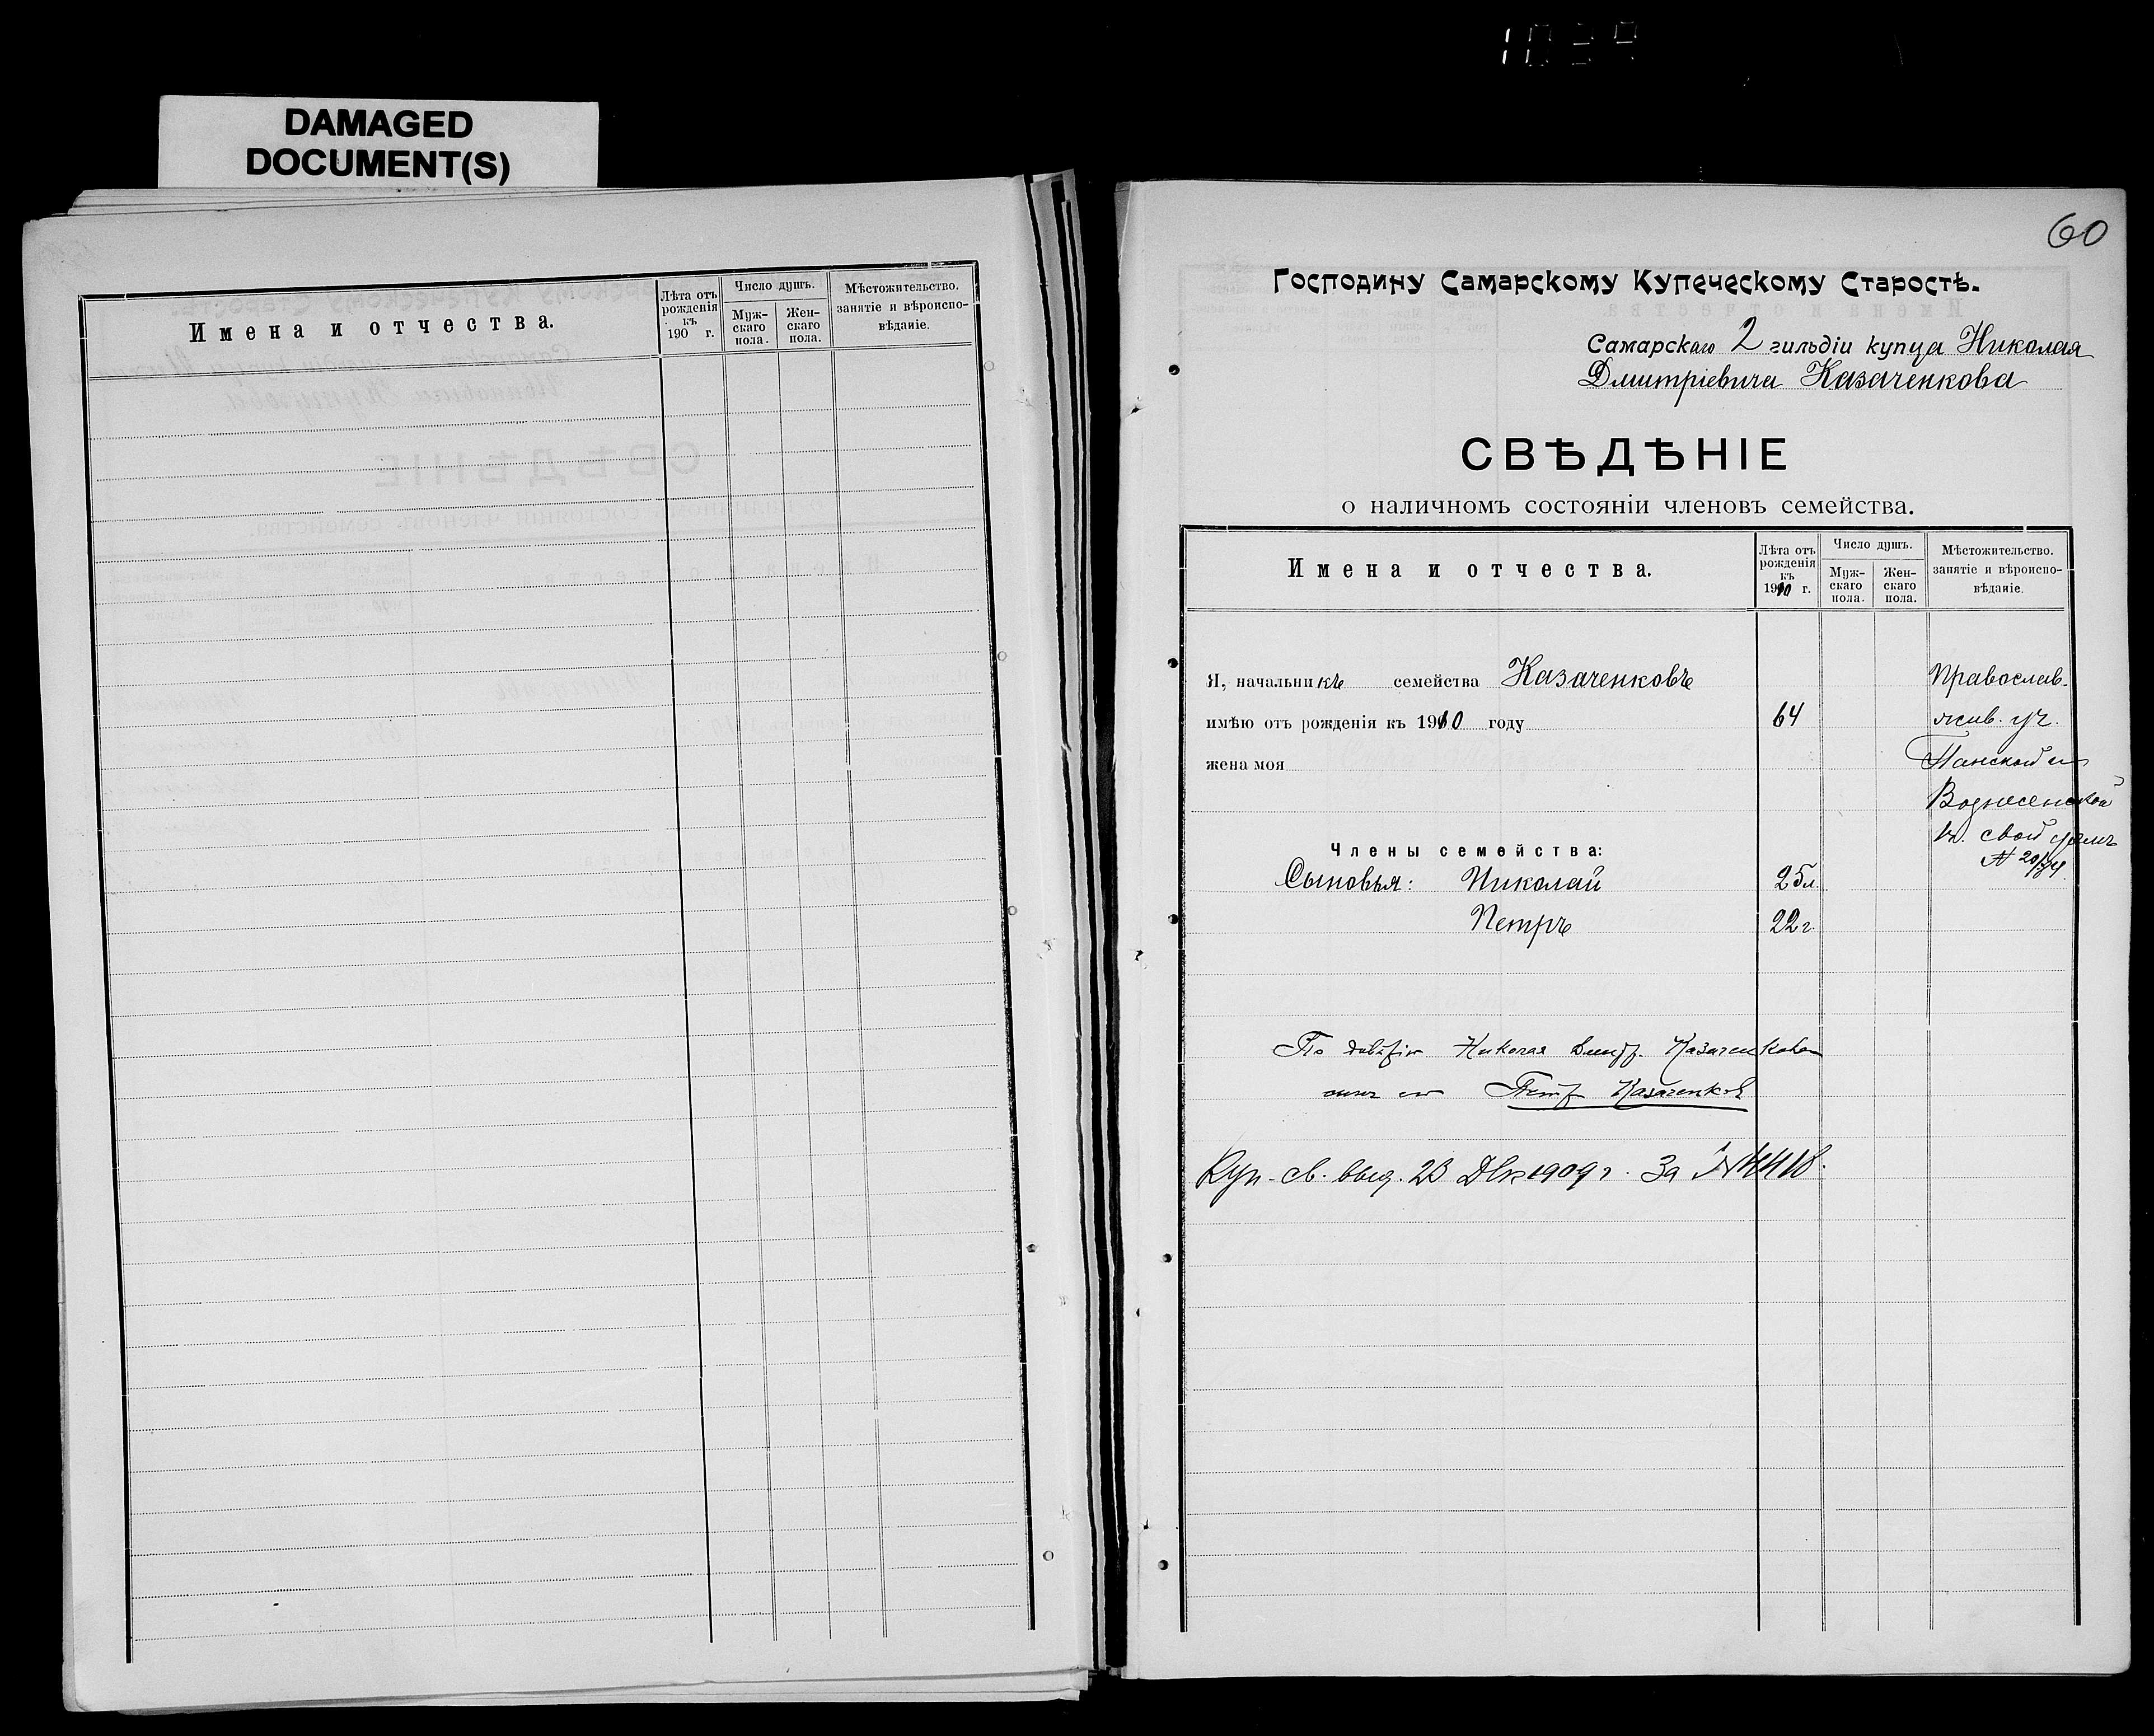 DAMAGED
DOCUMENT(S)
Имена и отчества.
Лѣта отъ рожденія къ 190 г.
Число душъ.
Муж-скаго пола.
Жен-скаго пола.
Мѣстожительство. занятіе и вѣроиспо-вѣданіе.
60
Господину Самарскому Купеческому Старостѣ.
Самарскаго 2 гильдіи купца Николая
Дмитріевича Казаченкова
СВѢДѢНІЕ
о наличномъ состояніи членовъ семейства.
Имена и отчества.
Лѣта отъ рожденія къ 1910 г.
Число душъ.
Муж-скаго пола.
Жен-скаго пола.
Мѣстожительство. занятіе и вѣроиспо-вѣданіе.
Я, начальникъ семейства Казаченковъ
Православ.
имѣю отъ рожденія къ 1910 году 64
жив. уг.
жена моя
Панской и
Вознесенской
в. свой домъ
№ 20/74
Члены семейства:
Сыновья: Николай 25 л.
Петръ 22 г.
По довѣрію Николая Дмитр. Казаченкова
сынъ его Петр Казаченков
Куп. св. выд. 23 Дек 1909 г. За № 4418.